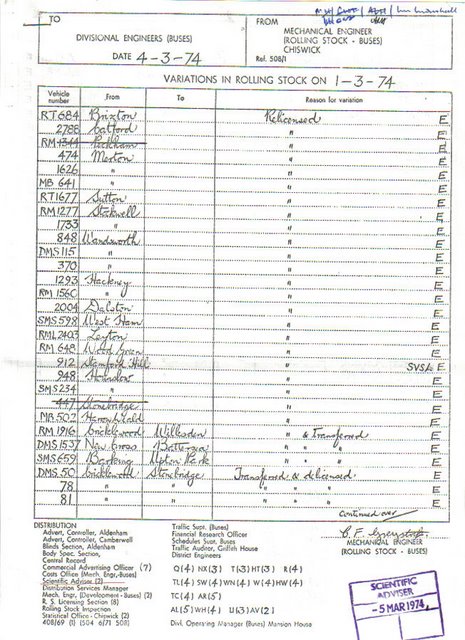 TO
DIVISIONAL ENGINEERS (BUSES)
DATE 4-3-74
FROM
MECHANICAL ENGINEER
(ROLLING STOCK - BUSES)
CHISWICK
Ref. 508/1
VARIATIONS IN ROLLING STOCK ON 1-3-74
Vehicle number From To Reason for variation
RT684 Brixton Relicensed E
2788 Catford " E
RM 1344 Peckham " E
474 Merton " E
1626 " " E
MB 641 " " E
RT1677 Sutton " E
RM1277 Stockwell " E
1733 " " E
848 Wandsworth " E
DMS 115 " " E
370 " " E
1293 Hackney " E
RM 1560 " " E
2004 Dalston " E
SMS 598 West Ham " E
RML 2403 Leyton " E
RM 648 Wood Green " E
912 Stamford Hill " SVS/c E
948 Hounslow " E
SMS 234 " " E
447 Stonebridge " E
MB 502 Harrow Weald " E
RM 1916 Cricklewood Willesden " & Transferred E
DMS 1537 New Cross Battersea " " " E
SMS 659 Barking Upton Park " " " E
DMS 50 Cricklewood Stonebridge Transferred & delicensed E
78 " " " " " E
81 " " " " " E
Continued over
DISTRIBUTION
Advert, Controller, Aldenham
Advert, Controller, Camberwell
Blinds Section, Aldenham
Body Spec. Section,
Central Record
Commercial Advertising Officer (7)
Costs Office (Mech. Engr.-Buses)
Scientific Adviser (2)
Distribution Services Manager
Mech. Engr. (Development - Buses) (2)
R. S. Licensing Section (8)
Rolling Stock Inspection
Statistical Office - Chiswick (2)
408/69 (I) 1504 6/71 508)
Traffic Supt. (Buses)
Financial Research Officer
Schedules Supt. Buses
Traffic Auditor, Griffith House
District Engineers
Q(4) NX(3) T(3) HT(3) R(4)
TL(4) SW(4) WN(4) W(4) HW(4)
TC(4) AR(5)
AL(5) WH(4) U(3) AV(2)
Divl. Operating Manager (Buses) Mansion House
MECHANICAL ENGINEER
(ROLLING STOCK - BUSES)
SCIENTIFIC
ADVISER
-5 MAR 1974